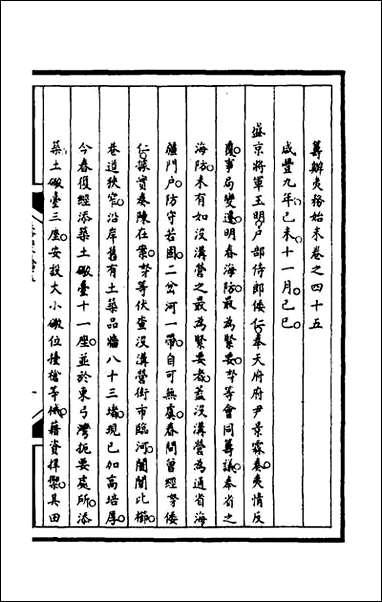 籌辦夷務始末卷之四十五
咸豐九年己未十一月己巳
盛京將軍玉明戶部侍郎倭仁奉天府府尹景霖奏夷情反
覆事局變遷明春海防最為緊要㢱等會同籌議奉省之
海防未有如沒溝營之最為緊要者蓋沒溝營為通省海
疆門戶防守若固二岔河一帶自可無虞春間曾經㢱倭
仁據實奏陳在案㢱等伏查沒溝營街市臨河闤闠比櫛
巷道狹窄沿岸舊有土築品牆八十三堵現已加高培厚
今春復經添築土礮臺十一座並於東弓灣扼要處所添
築土礮臺三座安設大小礮位擡槍等械藉資捍禦其田